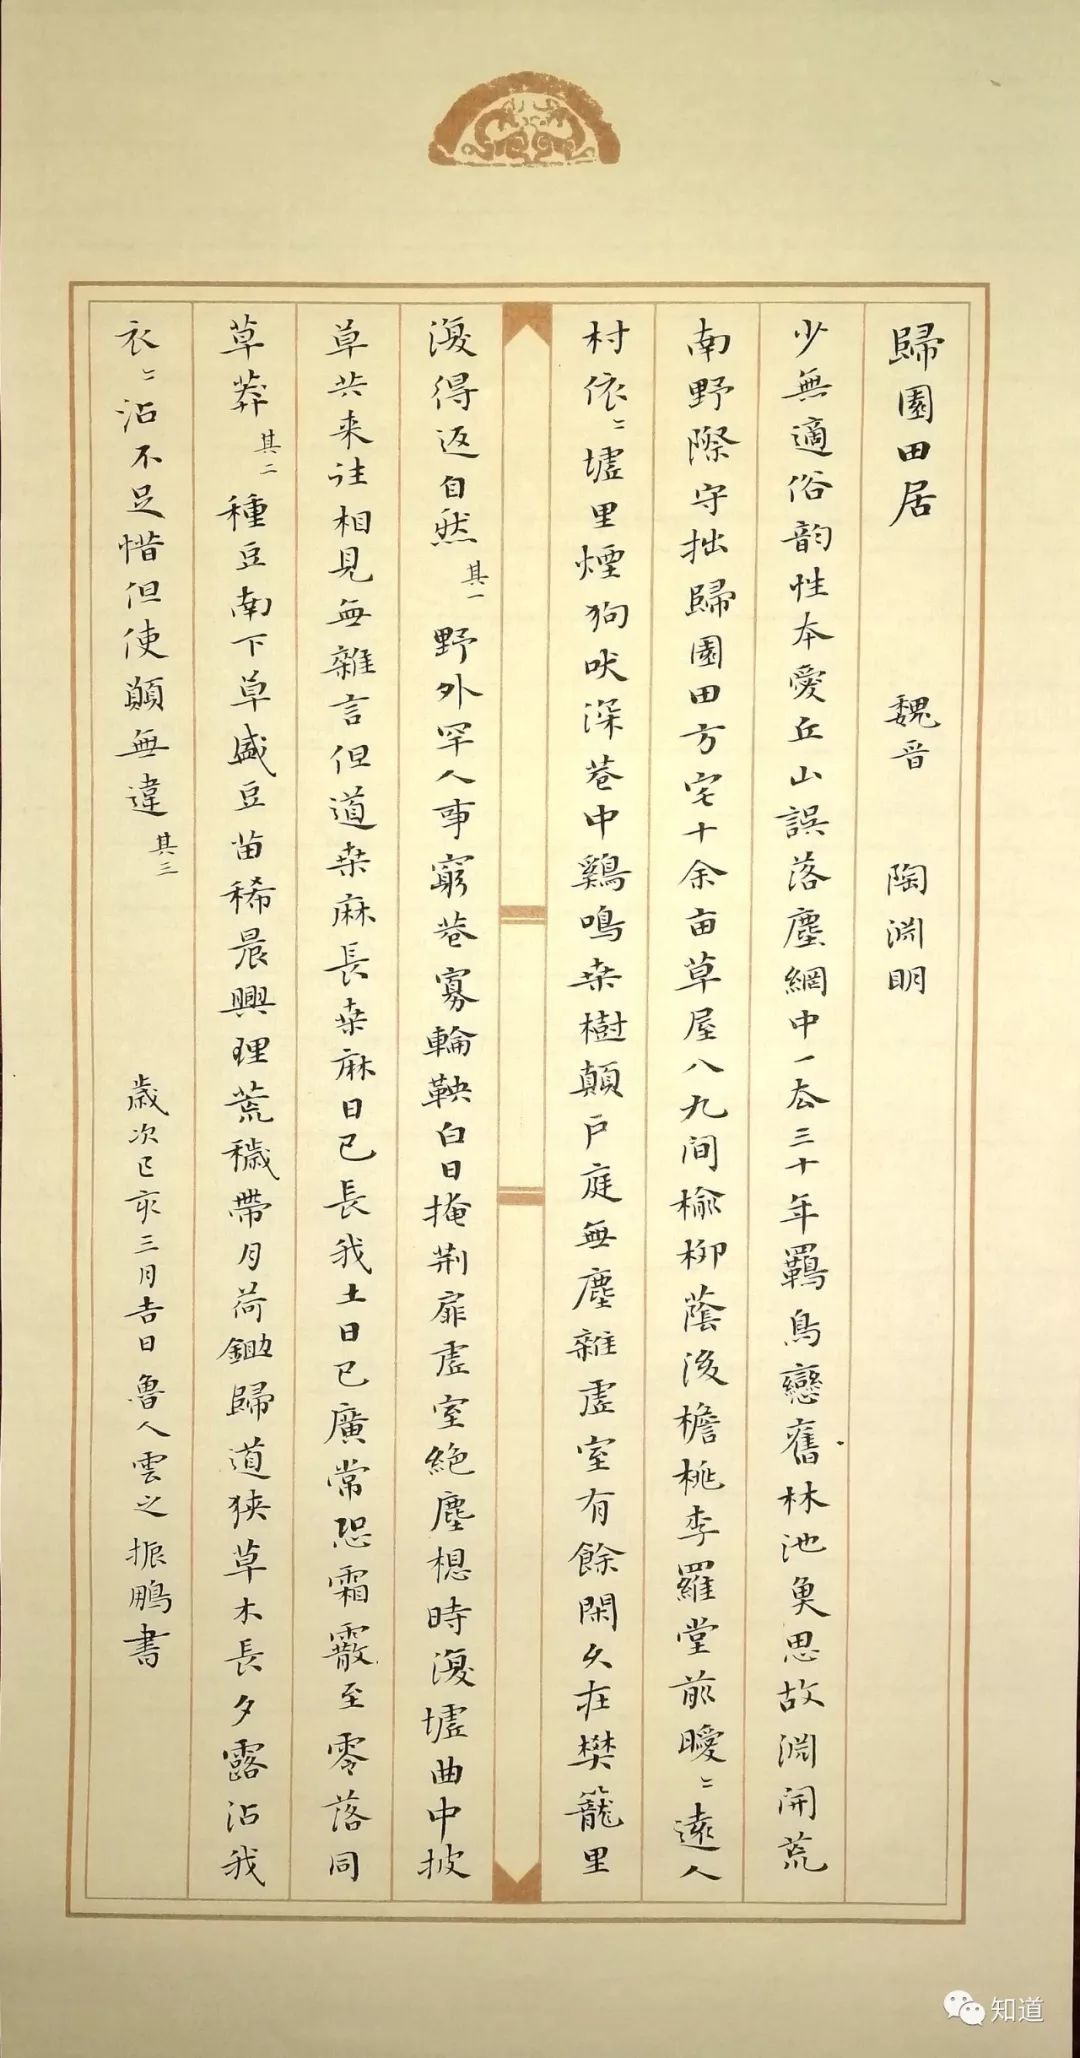 歸園田居 魏晋 陶渊明
少無適俗韵性本愛丘山誤落塵網中一去三十年羈鳥戀舊林池魚思故渊開荒
南野際守拙歸園田方宅十余亩草屋八九间榆柳蔭後檐桃李羅堂前曖〻遠人
村依〻墟里煙狗吠深巷中鷄鳴桑樹顛户庭無塵雜虛室有餘閑久在樊籠里
復得返自然 其一 野外罕人事窮巷寡輪鞅白日掩荆扉虛室絶塵想時復墟曲中披
草共来往相見無雜言但道桑麻長桑麻日已長我土日已廣常恐霜霰至零落同
草莽 其二 種豆南下草盛豆苗稀晨興理荒穢帶月荷鋤歸道狹草木長夕露沾我
衣〻沾不足惜但使願無違 其三 歲次己亥三月吉日魯人雲之振鵬書
知道